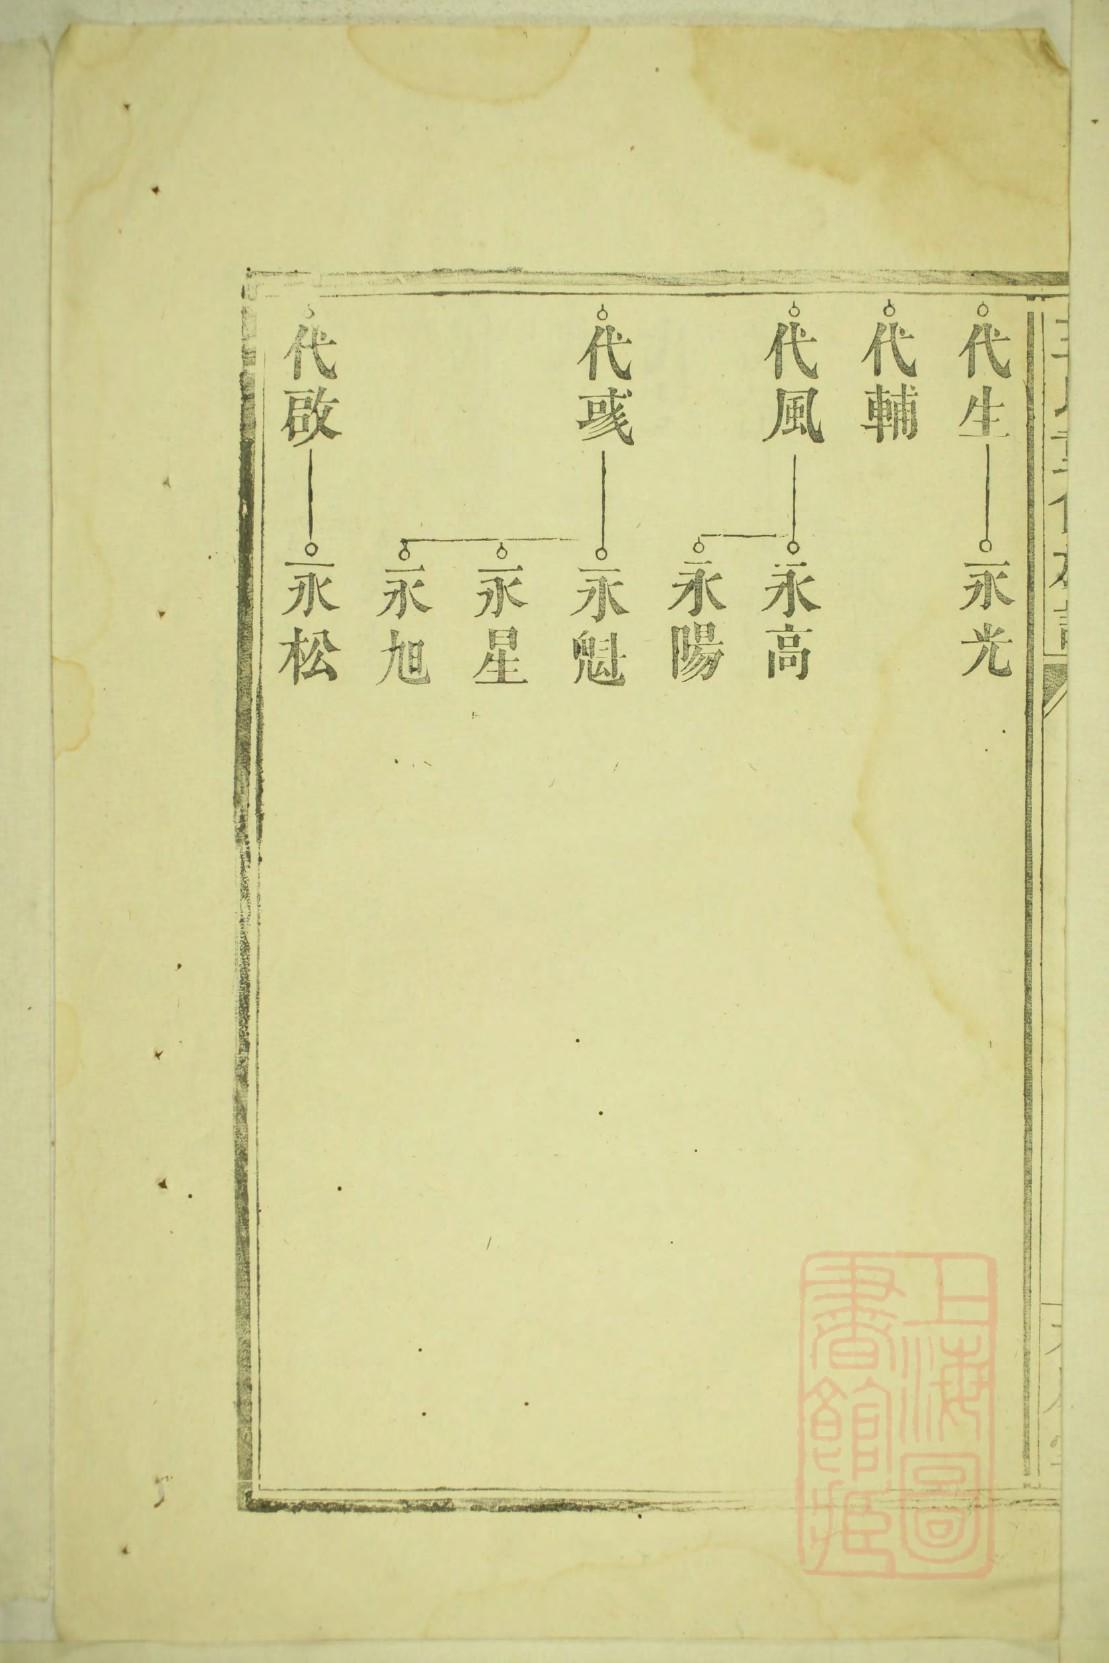 代生
永光
代輔
代風
永高
永陽
代彧
永魁
永星
永旭
代啟
永松
上海圖
書館藏